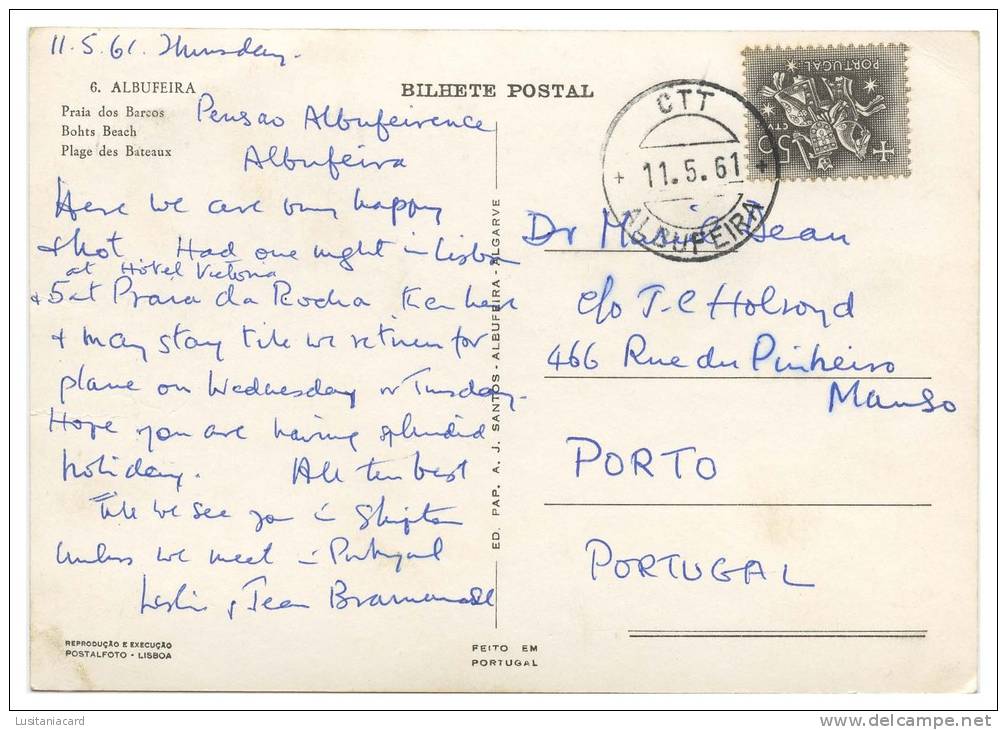 11.5.61. Thursday.
6. ALBUFEIRA
Praia dos Barcos
Bohts Beach
Plage des Bateaux
BILHETE POSTAL
Pensao Albufeirence
Albufeira
Here we are very happy
& hot Had one night in Lisbon
at Hotel Victoria
& 5 at Praia da Rocha here
& may stay till we return for
plane on Wednesday or Tuesday.
Hope you are having splendid
holiday. All the best
Till we see you in Shipton
unless we meet in Portugal
Leslie & Jean
CTT
11.5.61
ALBUFEIRA
PORTUGAL
CTT
Dr Dean
c/o J.C Holroyd
466 Rue du Pinheiro
Manso
PORTO
PORTUGAL
ED. PAP. A. J. SANTOS - ALBUFEIRA - ALGARVE
REPRODUÇÃO E EXECUÇÃO
POSTALFOTO - LISBOA
FEITO EM
PORTUGAL
Lusitaniacard
www.delcampe.net